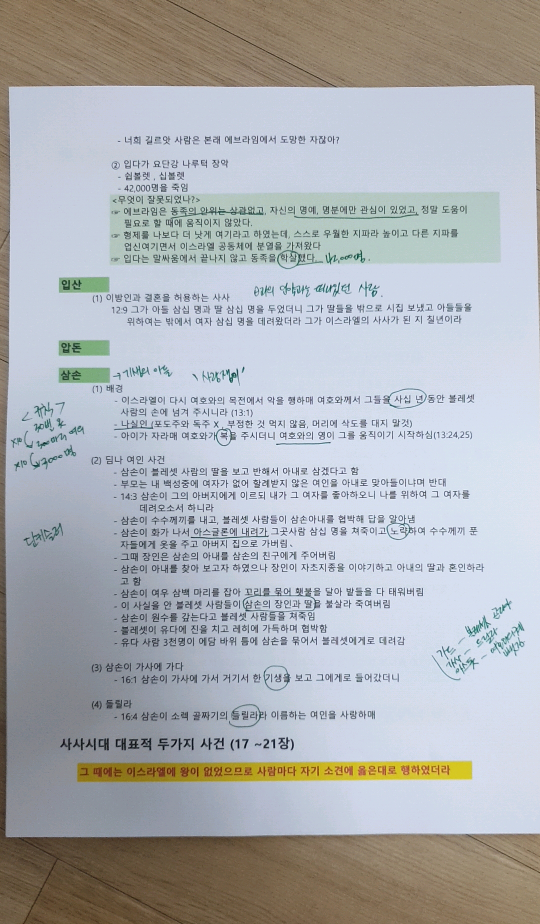 - 너희 길르앗 사람은 본래 에브라임에서 도망한 자잖아?
② 입다가 요단강 나루턱 장악
- 쉽볼렛 , 십볼렛
- 42,000명을 죽임
<무엇이 잘못되었나?>
☞ 에브라임은 동족의 안위는 상관없고, 자신의 명예, 명분에만 관심이 있었고, 정말 도움이
필요로 할 때에 움직이지 않았다.
☞ 형제를 나보다 더 낫게 여기라고 하였는데, 스스로 우월한 지파라 높이고 다른 지파를
업신여기면서 이스라엘 공동체에 분열을 가져왔다
☞ 입다는 말싸움에서 끝나지 않고 동족을 학살했다. 42,000명.
입산
(1) 이방인과 결혼을 허용하는 사사
12:9 그가 아들 삼십 명과 딸 삼십 명을 두었더니 그가 딸들을 밖으로 시집 보냈고 아들들을
위하여는 밖에서 여자 삼십 명을 데려왔더라 그가 이스라엘의 사사가 된 지 칠년이라
압돈
삼손 → 기쁨의 아들
(1) 배경
- 이스라엘이 다시 여호와의 목전에서 악을 행하매 여호와께서 그들을 사십 년 동안 블레셋
사람의 손에 넘겨 주시니라 (13:1)
- 나실인 (포도주와 독주 X , 부정한 것 먹지 않음, 머리에 삭도를 대지 말것)
- 아이가 자라매 여호와가 복을 주시더니 여호와의 영이 그를 움직이기 시작하심(13:24,25)
<규칙>
30명 옷
x10
300마리 여우
x10
3000명
(2) 딤나 여인 사건
- 삼손이 블레셋 사람의 딸을 보고 반해서 아내로 삼겠다고 함
- 부모는 내 백성중에 여자가 없어 할례받지 않은 여인을 아내로 맞아들이냐며 반대
- 14:3 삼손이 그의 아버지에게 이르되 내가 그 여자를 좋아하오니 나를 위하여 그 여자를
데려오소서 하니라
- 삼손이 수수께끼를 내고, 블레셋 사람들이 삼손아내를 협박해 답을 알아냄
- 삼손이 화가 나서 아스글론에 내려가 그곳사람 삼십 명을 쳐죽이고 노략하여 수수께끼 푼
자들에게 옷을 주고 아버지 집으로 가버림、
- 그때 장인은 삼손의 아내를 삼손의 친구에게 주어버림
- 삼손이 아내를 찾아 보고자 하였으나 장인이 자초지종을 이야기하고 아내의 딸과 혼인하라
고 함
- 삼손이 여우 삼백 마리를 잡아 꼬리를 묶어 횃불을 달아 밭들을 다 태워버림
- 이 사실을 안 블레셋 사람들이 삼손의 장인과 딸을 불살라 죽여버림
- 삼손이 원수를 갚는다고 블레셋 사람들을 쳐죽임
- 블레셋이 유다에 진을 치고 레히에 가득하며 협박함
- 유다 사람 3천명이 에담 바위 틈에 삼손을 묶어서 블레셋에게로 데려감
(3) 삼손이 가사에 가다
- 16:1 삼손이 가사에 가서 거기서 한 기생을 보고 그에게로 들어갔더니
(4) 들릴라
- 16:4 삼손이 소렉 골짜기의 들릴라라 이름하는 여인을 사랑하매
사사시대 대표적 두가지 사건 (17 ~21장)
그 때에는 이스라엘에 왕이 없었으므로 사람마다 자기 소견에 옳은대로 행하였더라